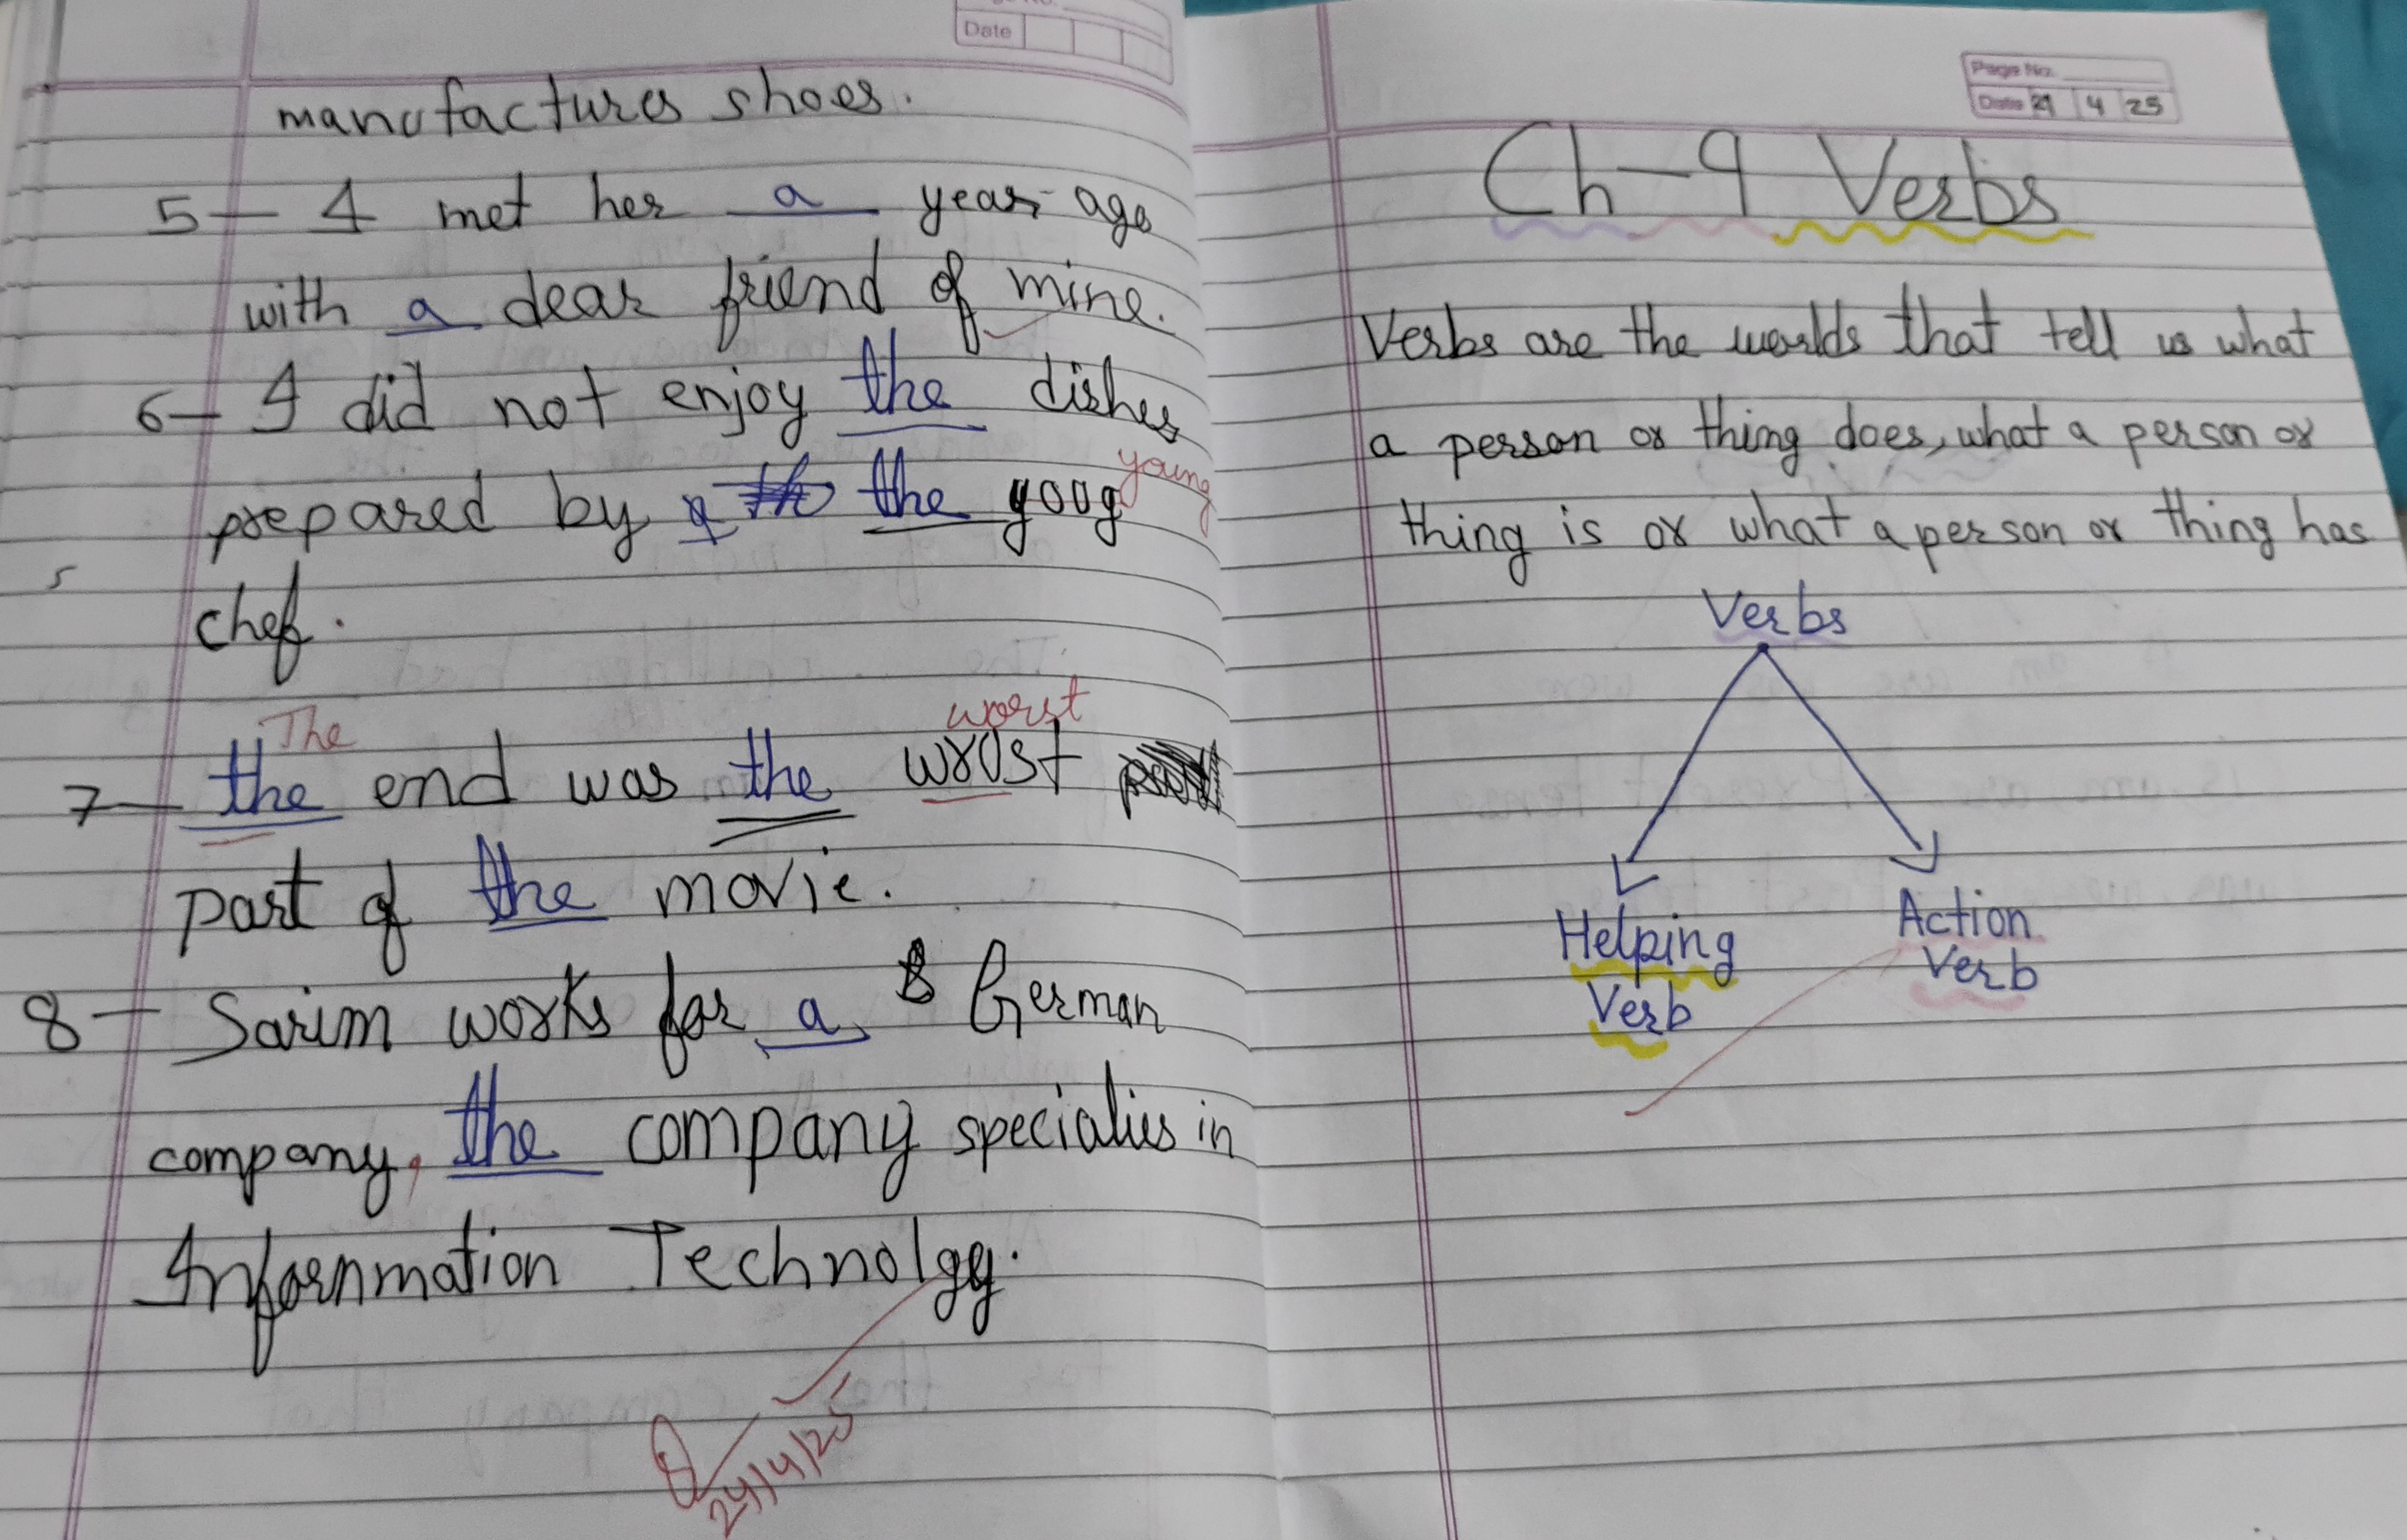 Date
manufactures shoes.
5 — I met her a year ago
with a dear friend of mine.
6 — I did not enjoy the dishes
prepared by the youg
young
chef.
The
worst
7 — the end was the wrost
part of the movie.
8 — Sarim works for a German
company, the company specialies in
Infornmation Technolgy.
24/4/25
Page No.
Date 21 4 25
Ch-9 Verbs
Verbs are the worlds that tell us what
a person or thing does, what a person or
thing is or what a person or thing has
Verbs
Helping
Verb
Action
Verb